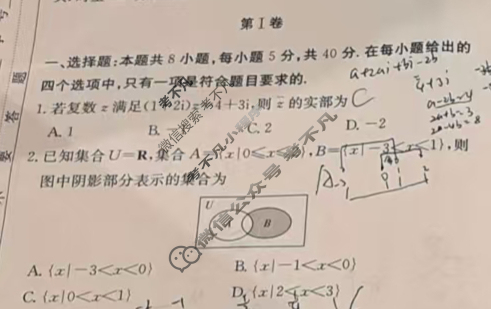 第Ⅰ卷
一、选择题:本题共 8 小题,每小题 5 分,共 40 分. 在每小题给出的
四个选项中,只有一项是符合题目要求的.
1. 若复数 z 满足(1+2i)z=4+3i,则 z̄ 的实部为 C
A. 1 B. C. 2 D. -2
2. 已知集合 U=R,集合 A={x|0≤x≤ },B={x|-3<x<1},则
图中阴影部分表示的集合为
U
A B
A. {x|-3<x<0} B. {x|-1<x<0}
C. {x|0<x<1} D. {x|2<x<3}
题
答
要
a+2ai+bi-2b
4+3i
微信搜索考不凡
考不凡小程序
微信公众号考不凡